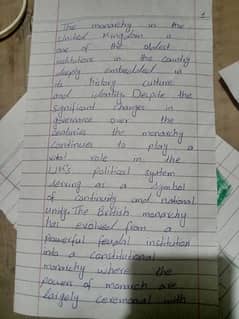 1
The monarchy in the
United Kingdom is
one of the oldest
institutions in the country
deeply embedded in
its history culture
and identity. Despite the
significant changes in
governance over the
centuries the monarchy
continues to play a
vital role in the
UK's political system
serving as a symbol
of continuity and national
unity. The British monarchy
has evolved from a
powerful feudal institution
into a constitutional
monarchy where the
powers of monarch are
largely ceremonial with